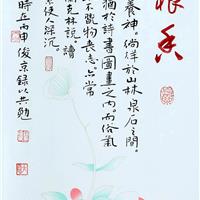 根香
養神。徜徉於山林泉石之間。
猶於詩書圖畫之内。而俗氣
不翫物喪志。亦常
蘭克林說。讀
使人深沉。
時在丙申俊京録以共勉